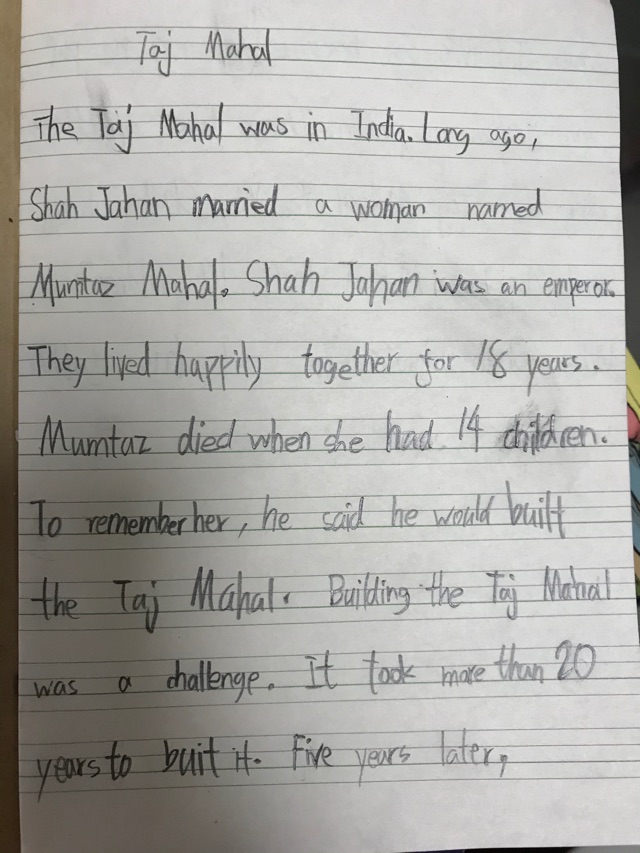 Taj Mahal
The Taj Mahal was in India. Long ago,
Shah Jahan married a woman named
Mumtaz Mahal. Shah Jahan was an emperor.
They lived happily together for 18 years.
Mumtaz died when she had 14 children.
To remember her, he said he would built
the Taj Mahal. Building the Taj Mahal
was a challenge. It took more than 20
years to buit it. Five years later,